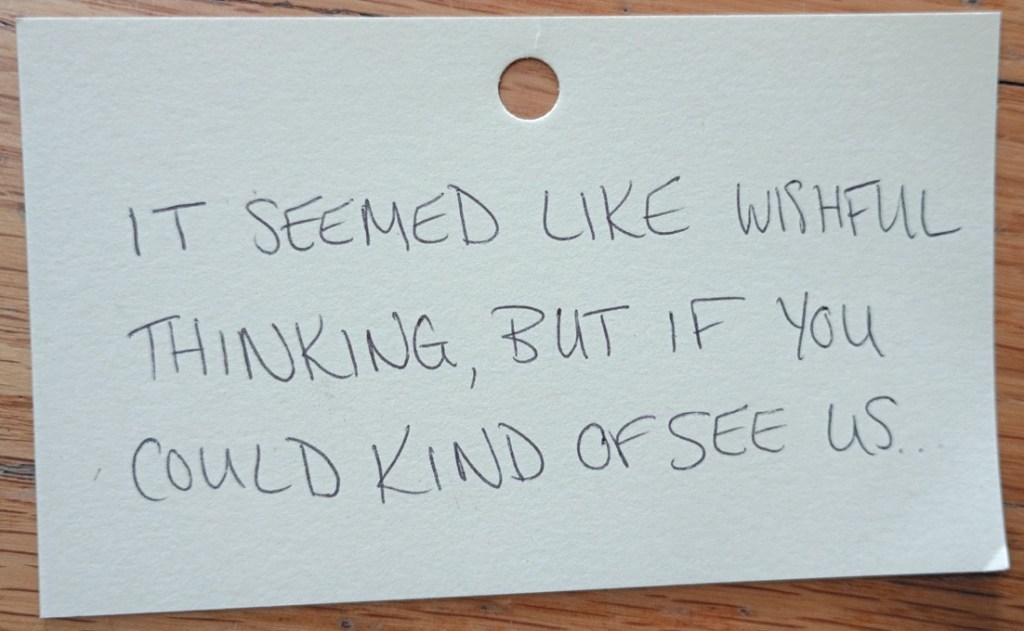 IT SEEMED LIKE WISHFUL
THINKING, BUT IF YOU
COULD KIND OF SEE US...